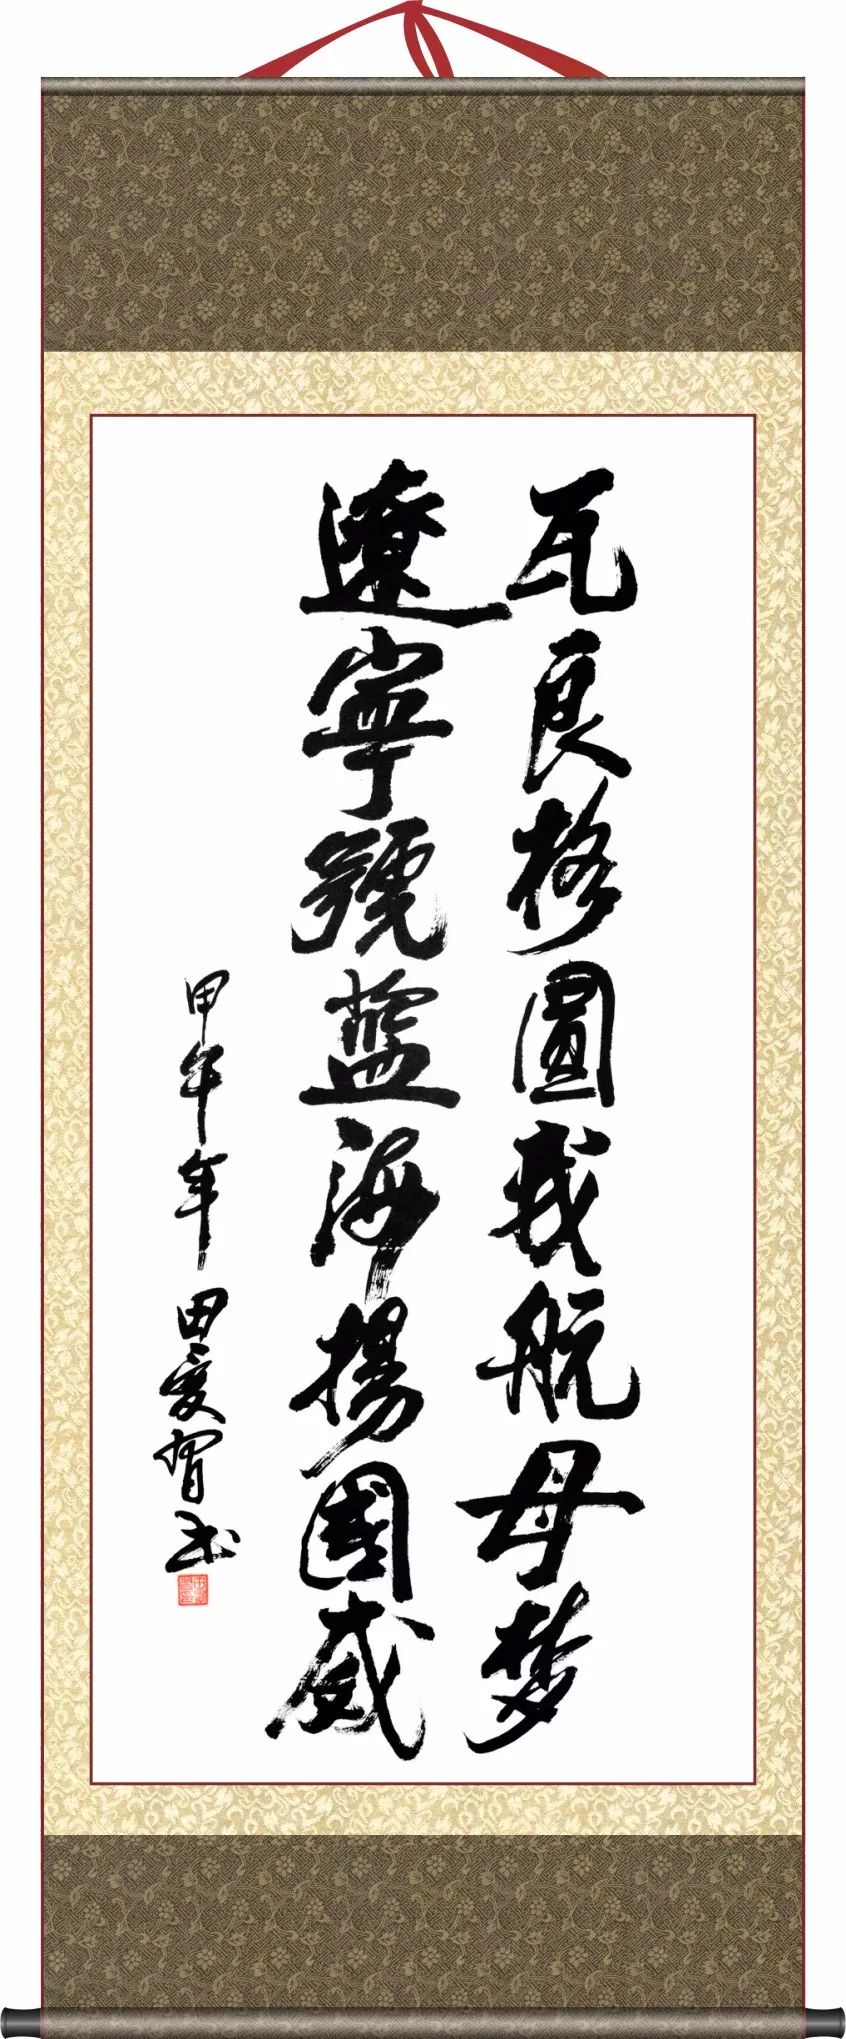 瓦良格圓我航母夢
遼寧號藍海揚國威
甲午年田愛習书